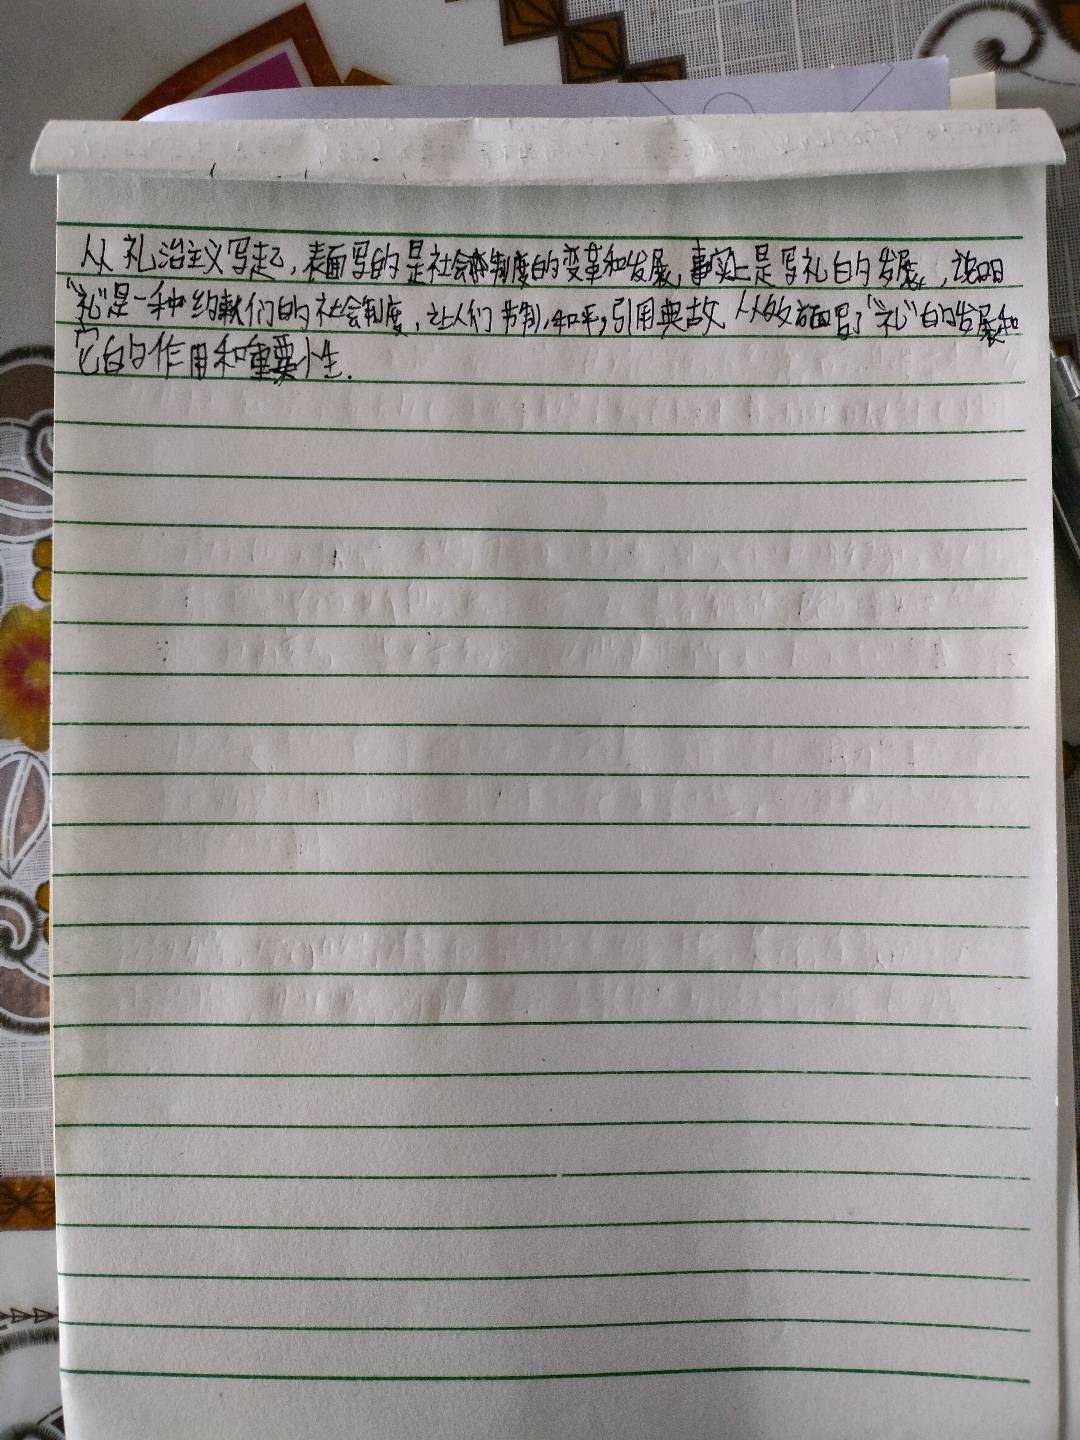 从礼治主义写起,表面写的是社会制度的变革和发展,事实上是写礼的发展,说明
"礼"是一种约束们的社会制度,让人们节制,和平,引用典故 从多方面写了"礼"的发展和
它的作用和重要性.